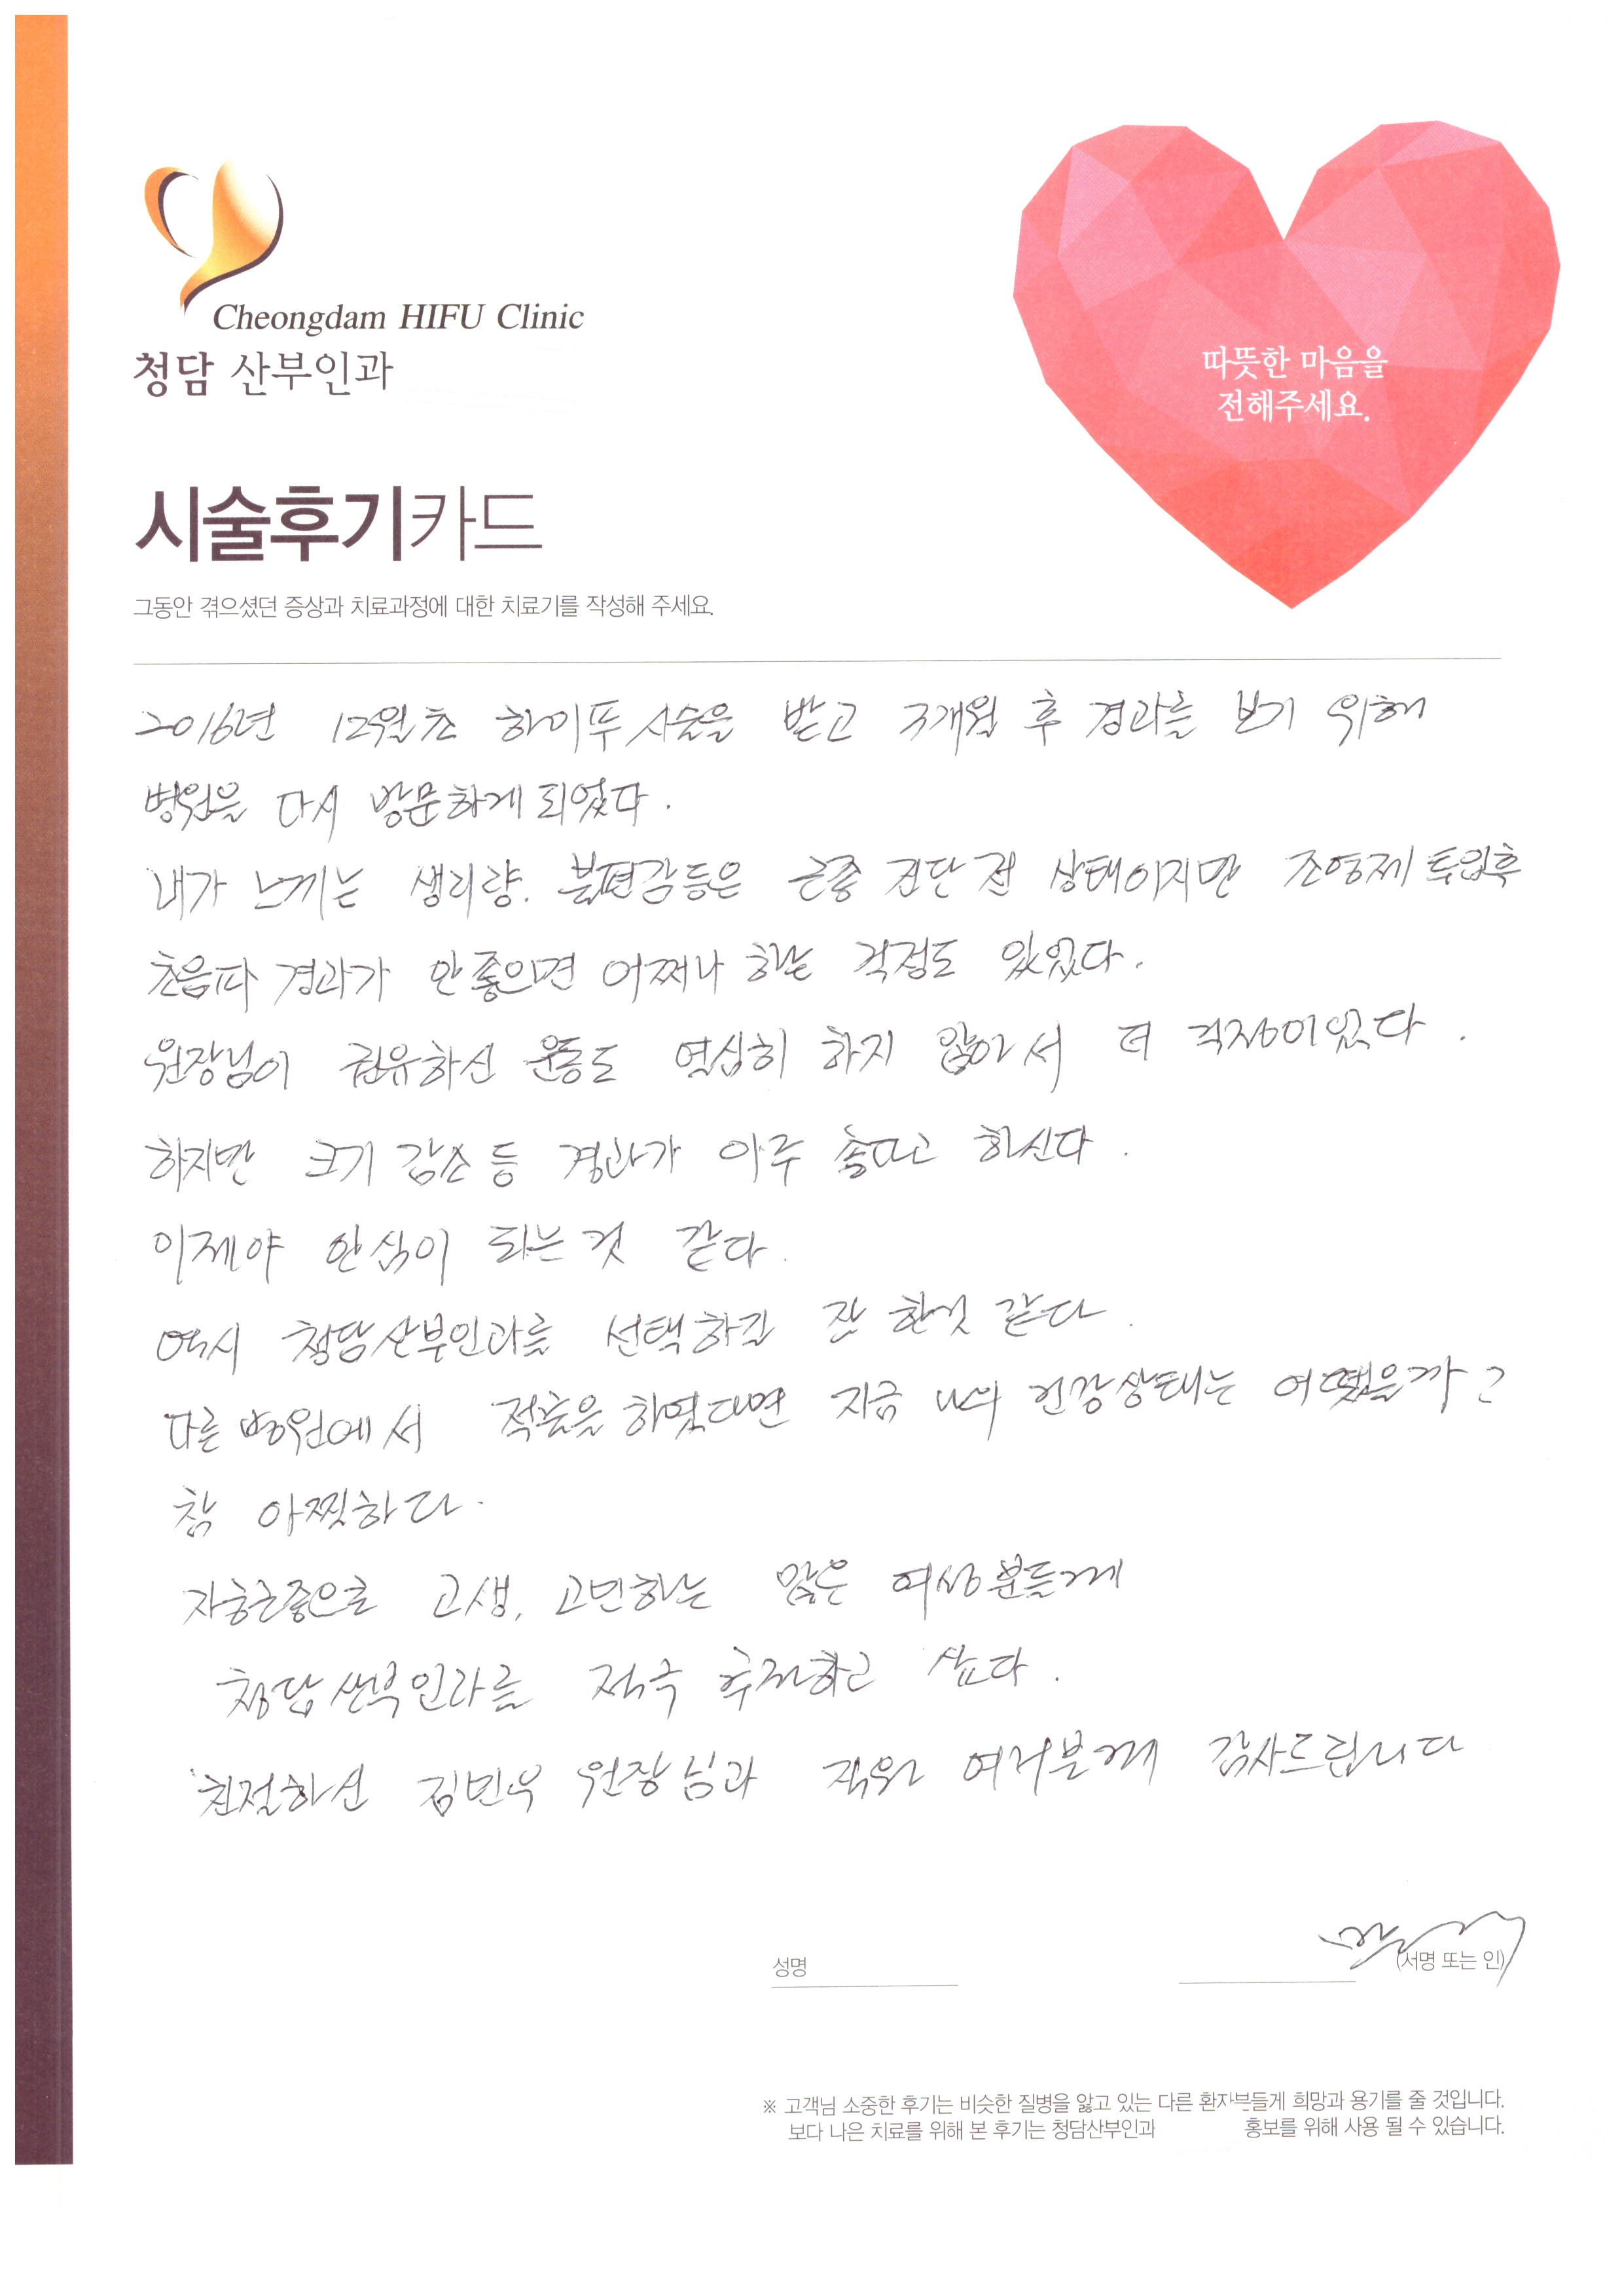 Cheongdam HIFU Clinic
청담 산부인과
따뜻한 마음을
전해주세요.
시술후기카드
그동안 겪으셨던 증상과 치료과정에 대한 치료기를 작성해 주세요.
2016년 12월초 하이푸 시술을 받고 3개월 후 경과를 보기 위해
병원을 다시 방문하게 되었다.
내가 느끼는 생리량. 불편감등은 근종 진단 전 상태이지만 조영제 투입후
초음파 경과가 안좋으면 어쩌나 하는 걱정도 있었다.
원장님이 권유하신 운동도 열심히 하지 않아서 더 걱정이었다.
하지만 크기 감소 등 경과가 아주 좋다고 하신다.
이제야 안심이 되는것 같다.
역시 청담산부인과를 선택하길 잘 한것 같다.
다른 병원에서 적출을 하였다면 지금 나의 건강상태는 어땠을까?
참 아찔하다.
자궁근종으로 고생, 고민하는 많은 여성분들께
청담산부인과를 적극 추천하고 싶다.
친절하신 김민우 원장님과 직원 여러분께 감사드립니다
성명
(서명 또는 인)
※ 고객님 소중한 후기는 비슷한 질병을 앓고 있는 다른 환자분들게 희망과 용기를 줄 것입니다.
보다 나은 치료를 위해 본 후기는 청담산부인과 홍보를 위해 사용 될 수 있습니다.